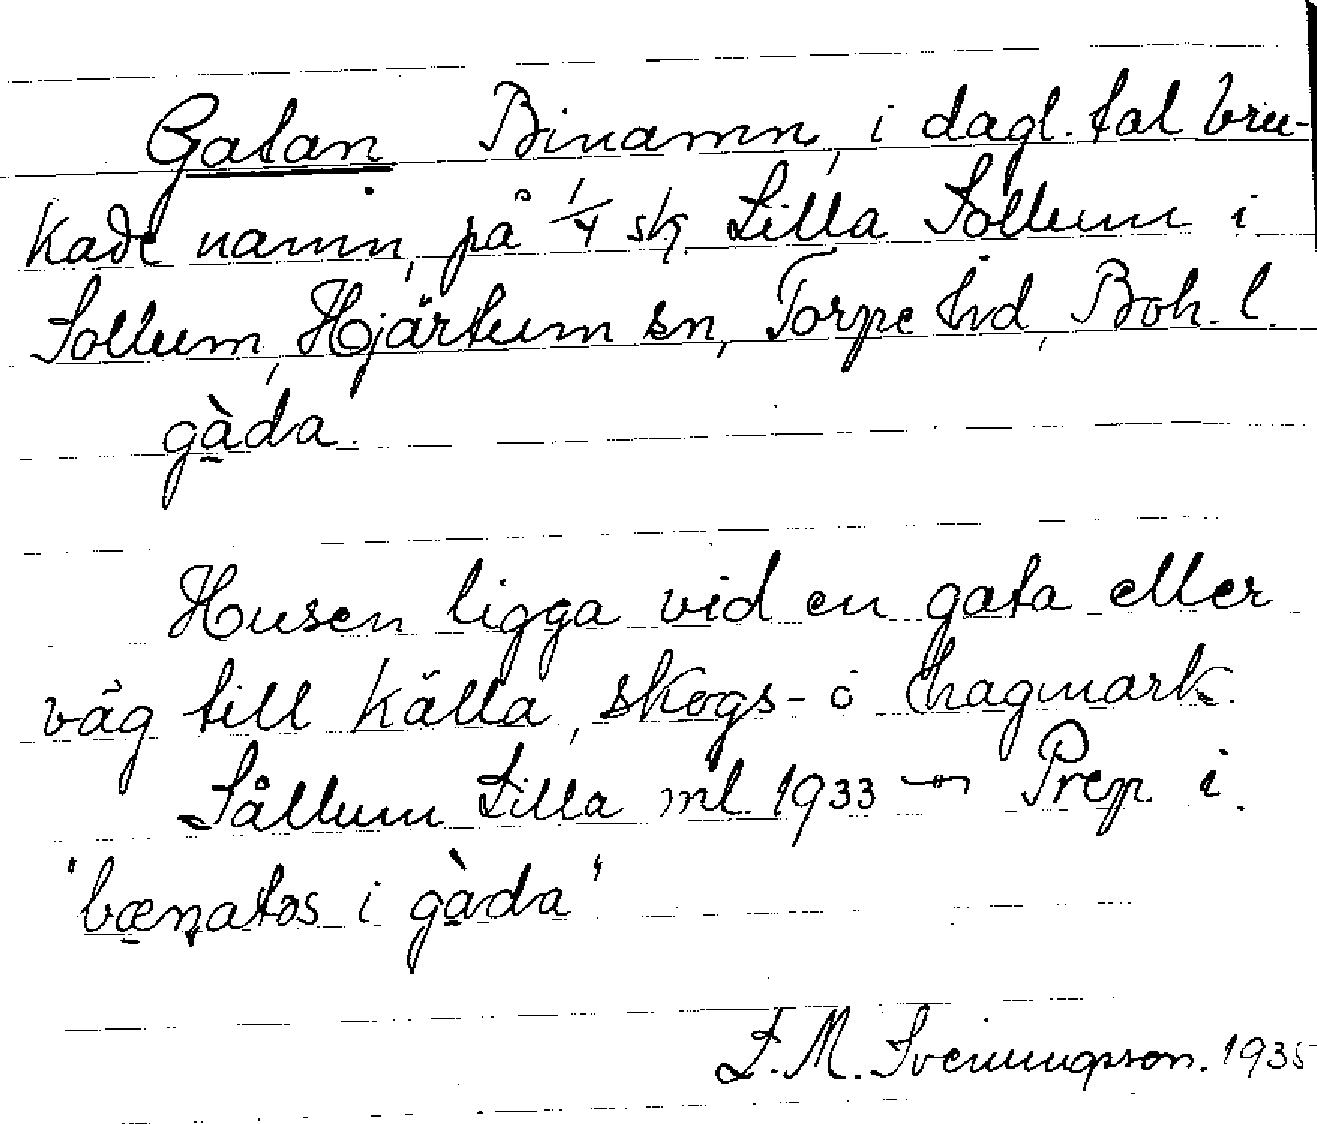 Gatan Binamn, i dagl. tal bru-
kade namn, på 1/4 skj. Lilla Sollum i
Sollum, Hjärtum sn, Torpe hd, Boh. l.
gàda.
Husen ligga vid en gata eller
väg till källa, skogs- o hagmark.
Sållum Lilla ml 1933 Prep i.
"bænatos i gàda"
F. M. Svenungsson. 1935